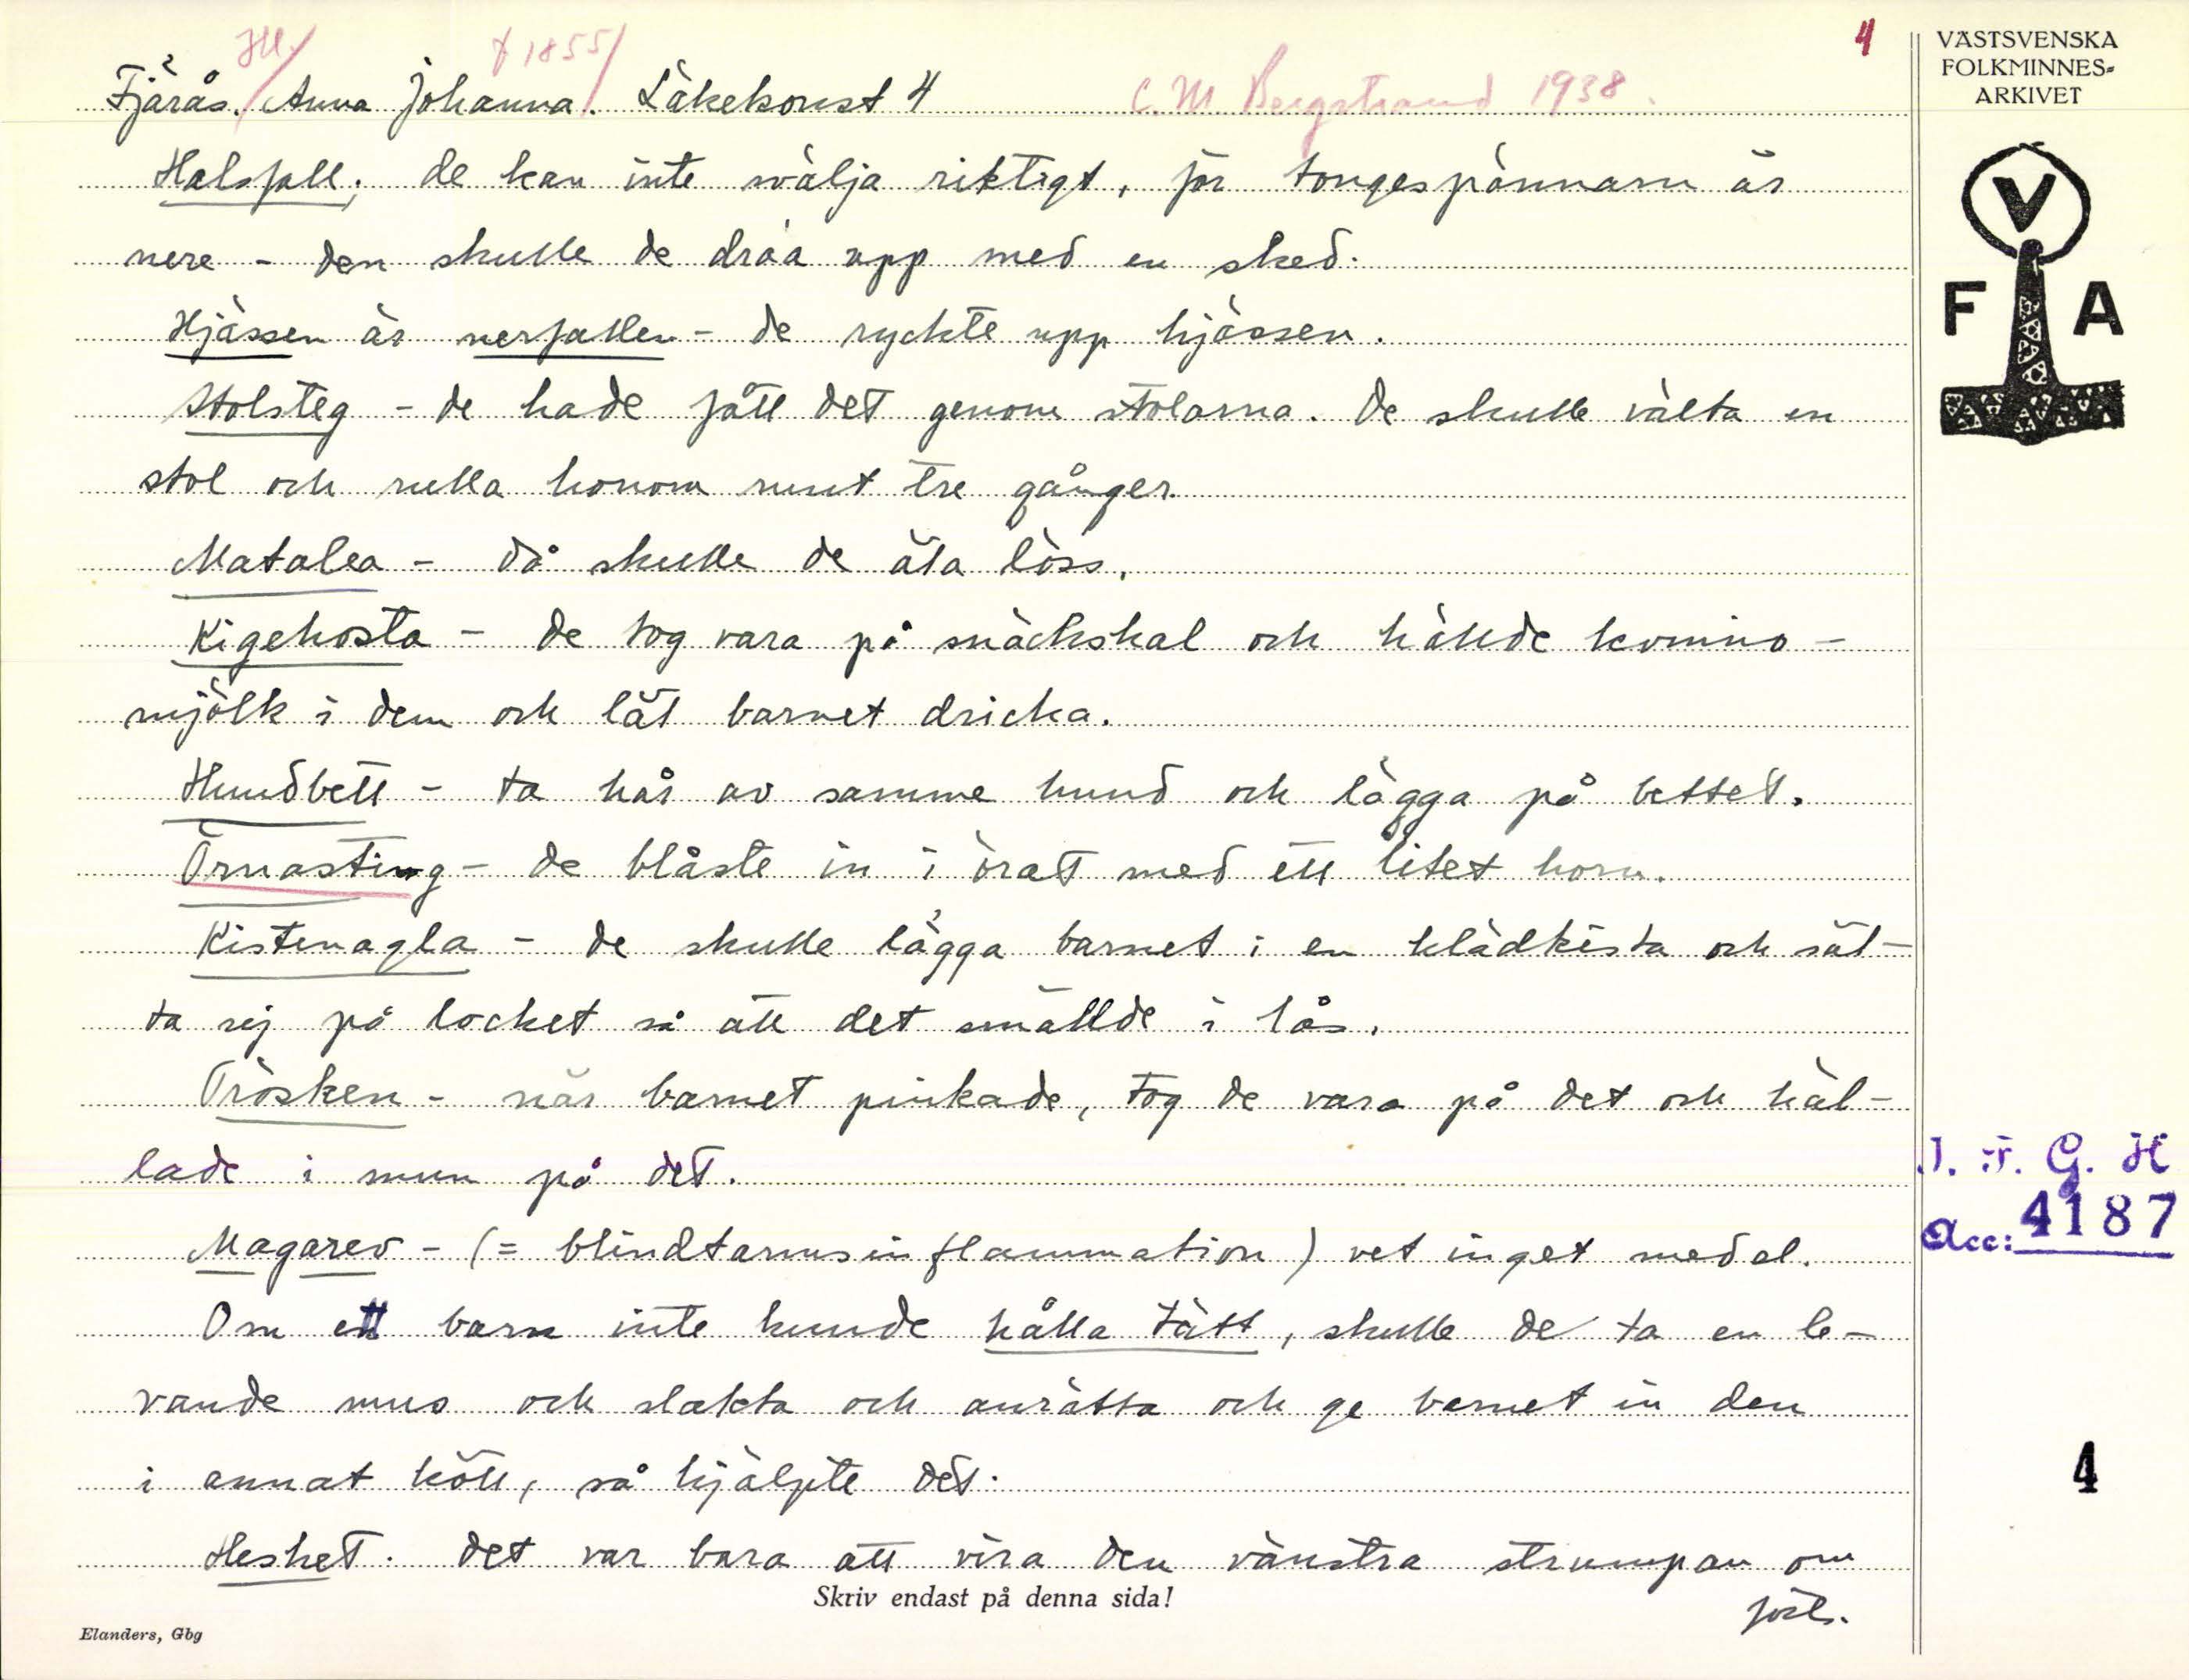 Hll/ f 1855/ 4
Fjärås. Anna Johanna. Läkekonst 4 C. M. Bergstrand 1938.
Halsfall; de kan inte svälja riktigt, för tongespännarn är
nere - den skulle de dráa upp med en sked.
Hjässen är nerfallen - de ryckte upp hjässen.
Stolsteg - de hade fått det genom stolarna. De skulle välta en
stol och rulla honom runt tre gånger.
Matalea - då skulle de äta löss.
Kigehosta - de tog vara på snäckskal och hällde kvinno-
mjölk i dem och lät barnet dricka.
Hundbett - ta hår av samme hund och lägga på bettet.
Örnasting - de blåste in i örat med ett litet horn.
Kistenagla - de skulle lägga barnet i en klädkista och sät-
ta sej på locket så att det smällde i lås.
Trösken - när barnet pinkade, tog de vara på det och häl-
lade i mun på det.
Magarev - (= blindtarmsinflammation) vet inget medel.
Om ett barn inte kunde hålla tätt, skulle de ta en le-
vande mus och slakta och anrätta och ge barnet in den
i annat kött, så hjälpte det.
Heshet. det var bara att vira den vänstra strumpan om
forts.
Skriv endast på denna sida!
Elanders, Gbg
VÄSTSVENSKA
FOLKMINNES-
ARKIVET
V
F A
I. F. G. H
Acc: 4187
4